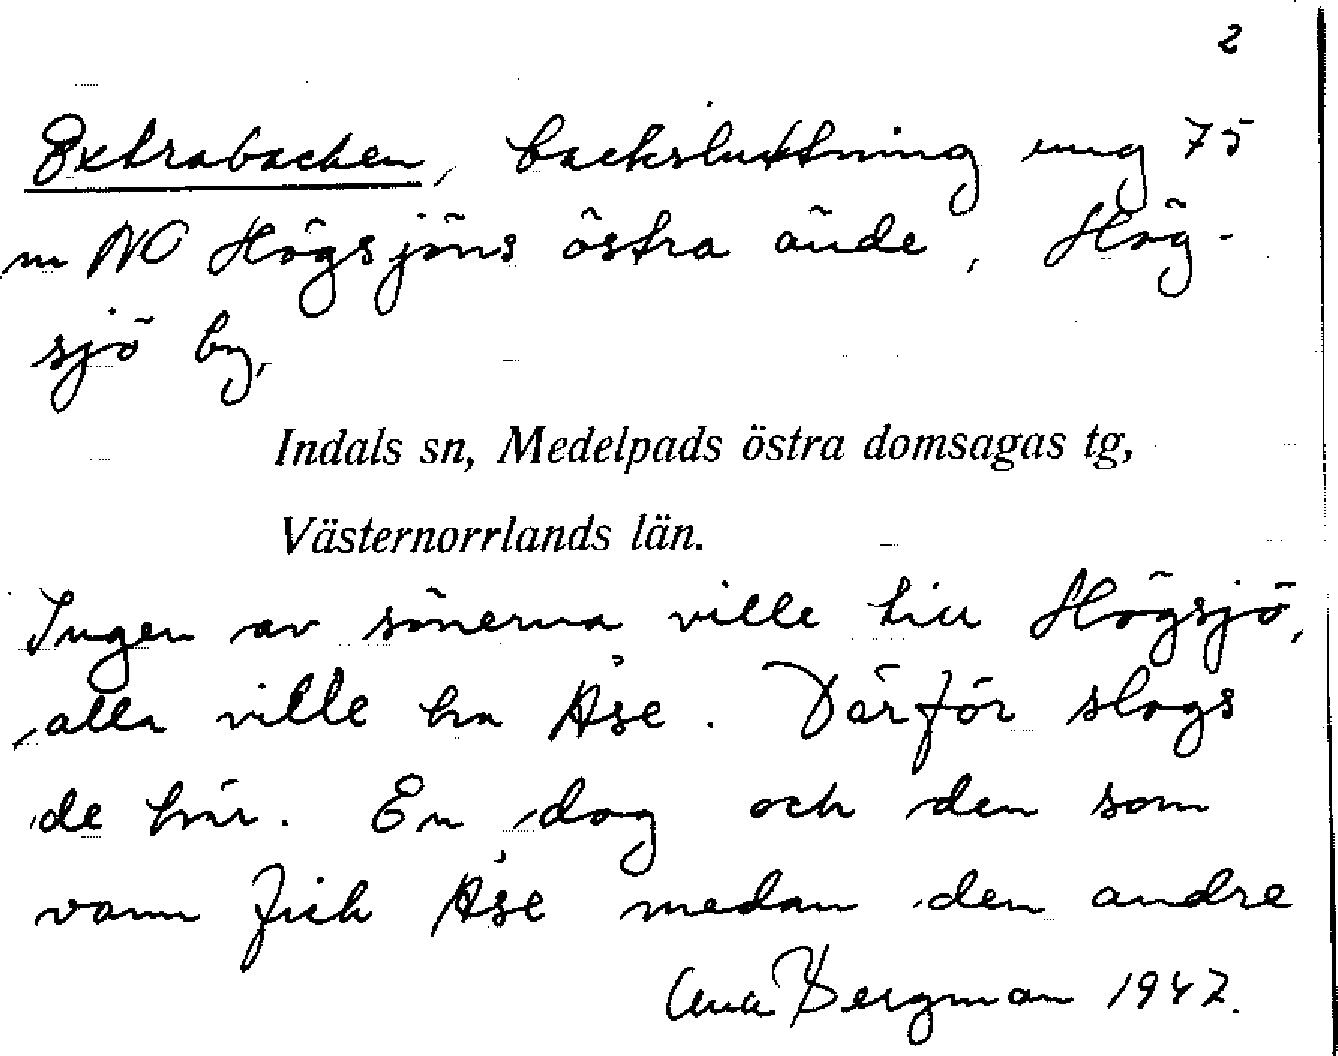 2
Extrabacken, backsluttning ung 75
m NO Högsjöns östra ände, Hög-
sjö by,
Indals sn, Medelpads östra domsagas tg,
Västernorrlands län.
Ingen av sönerna ville till Högsjö,
alla ville ha Åse. Därför slogs
de här. En dag och den som
vann fick Åse medan den andre
Bergman 1947.